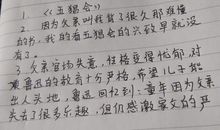 1. 《五猖会》
2. 因为父亲叫我背了很久那难懂
的书,我的看五猖会的兴致早就没
有了。
3. 父亲官场失意,性格变得忧郁,对
鲁迅的教育十分严格,希望儿子能
出人头地,鲁迅回忆到:童年因为父亲
失去了很多乐趣,但仍感谢家父的